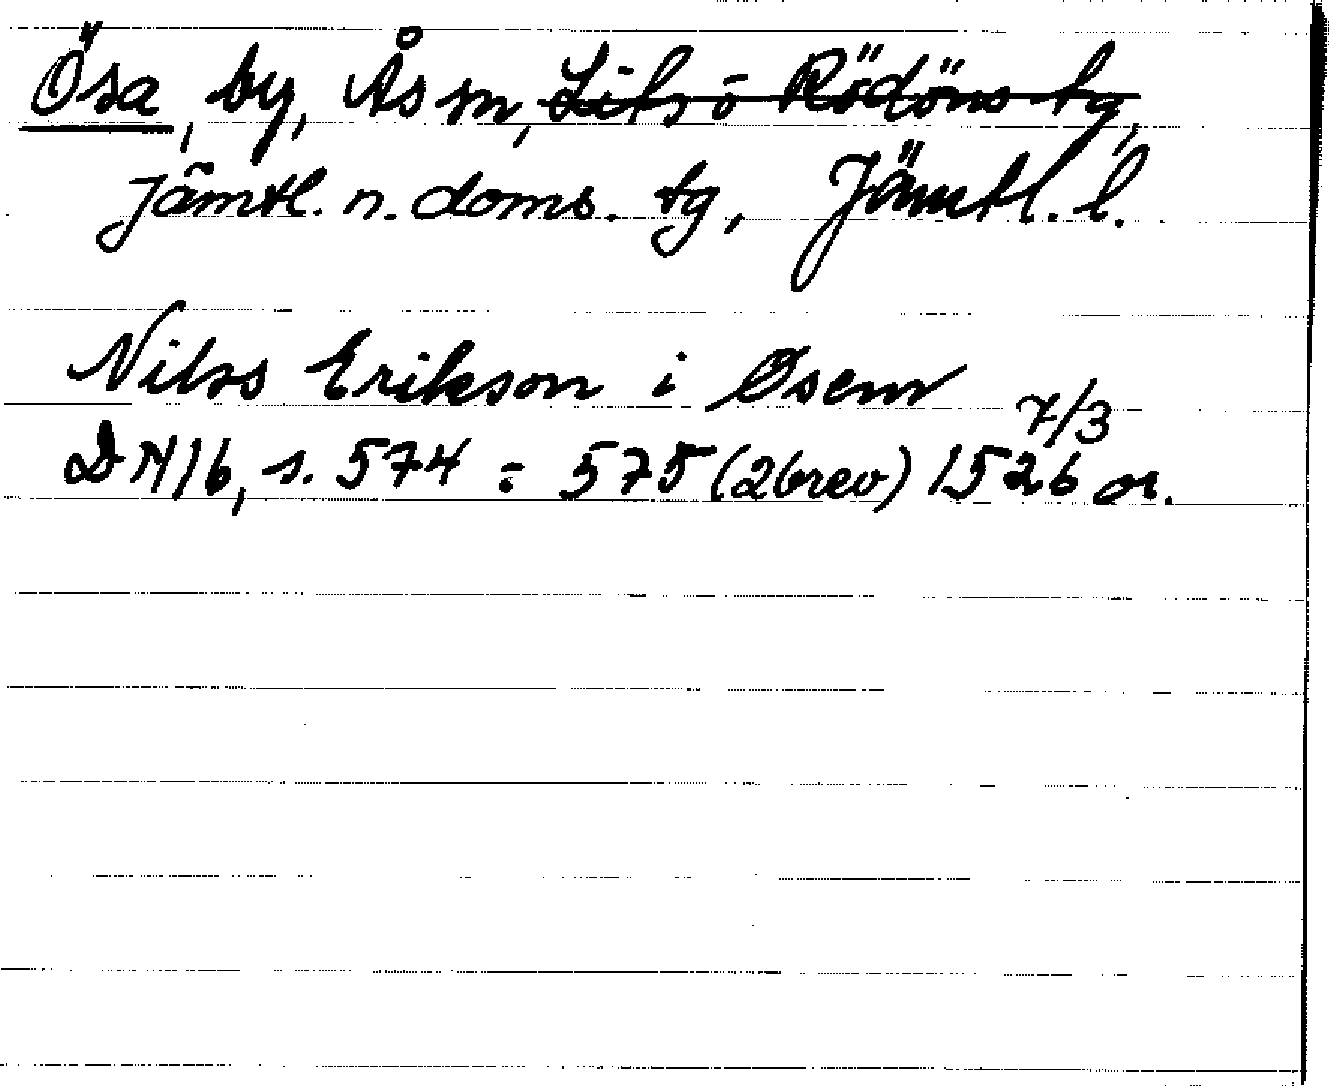 Ösa, by, Ås sn, Lits o Rödöns tg,
Jämtl. n. doms. tg, Jämtl. l.
Nilss Erikson i Øsem
7/3
DN 16, s. 574 - 575 (2 brev) 1526 or.